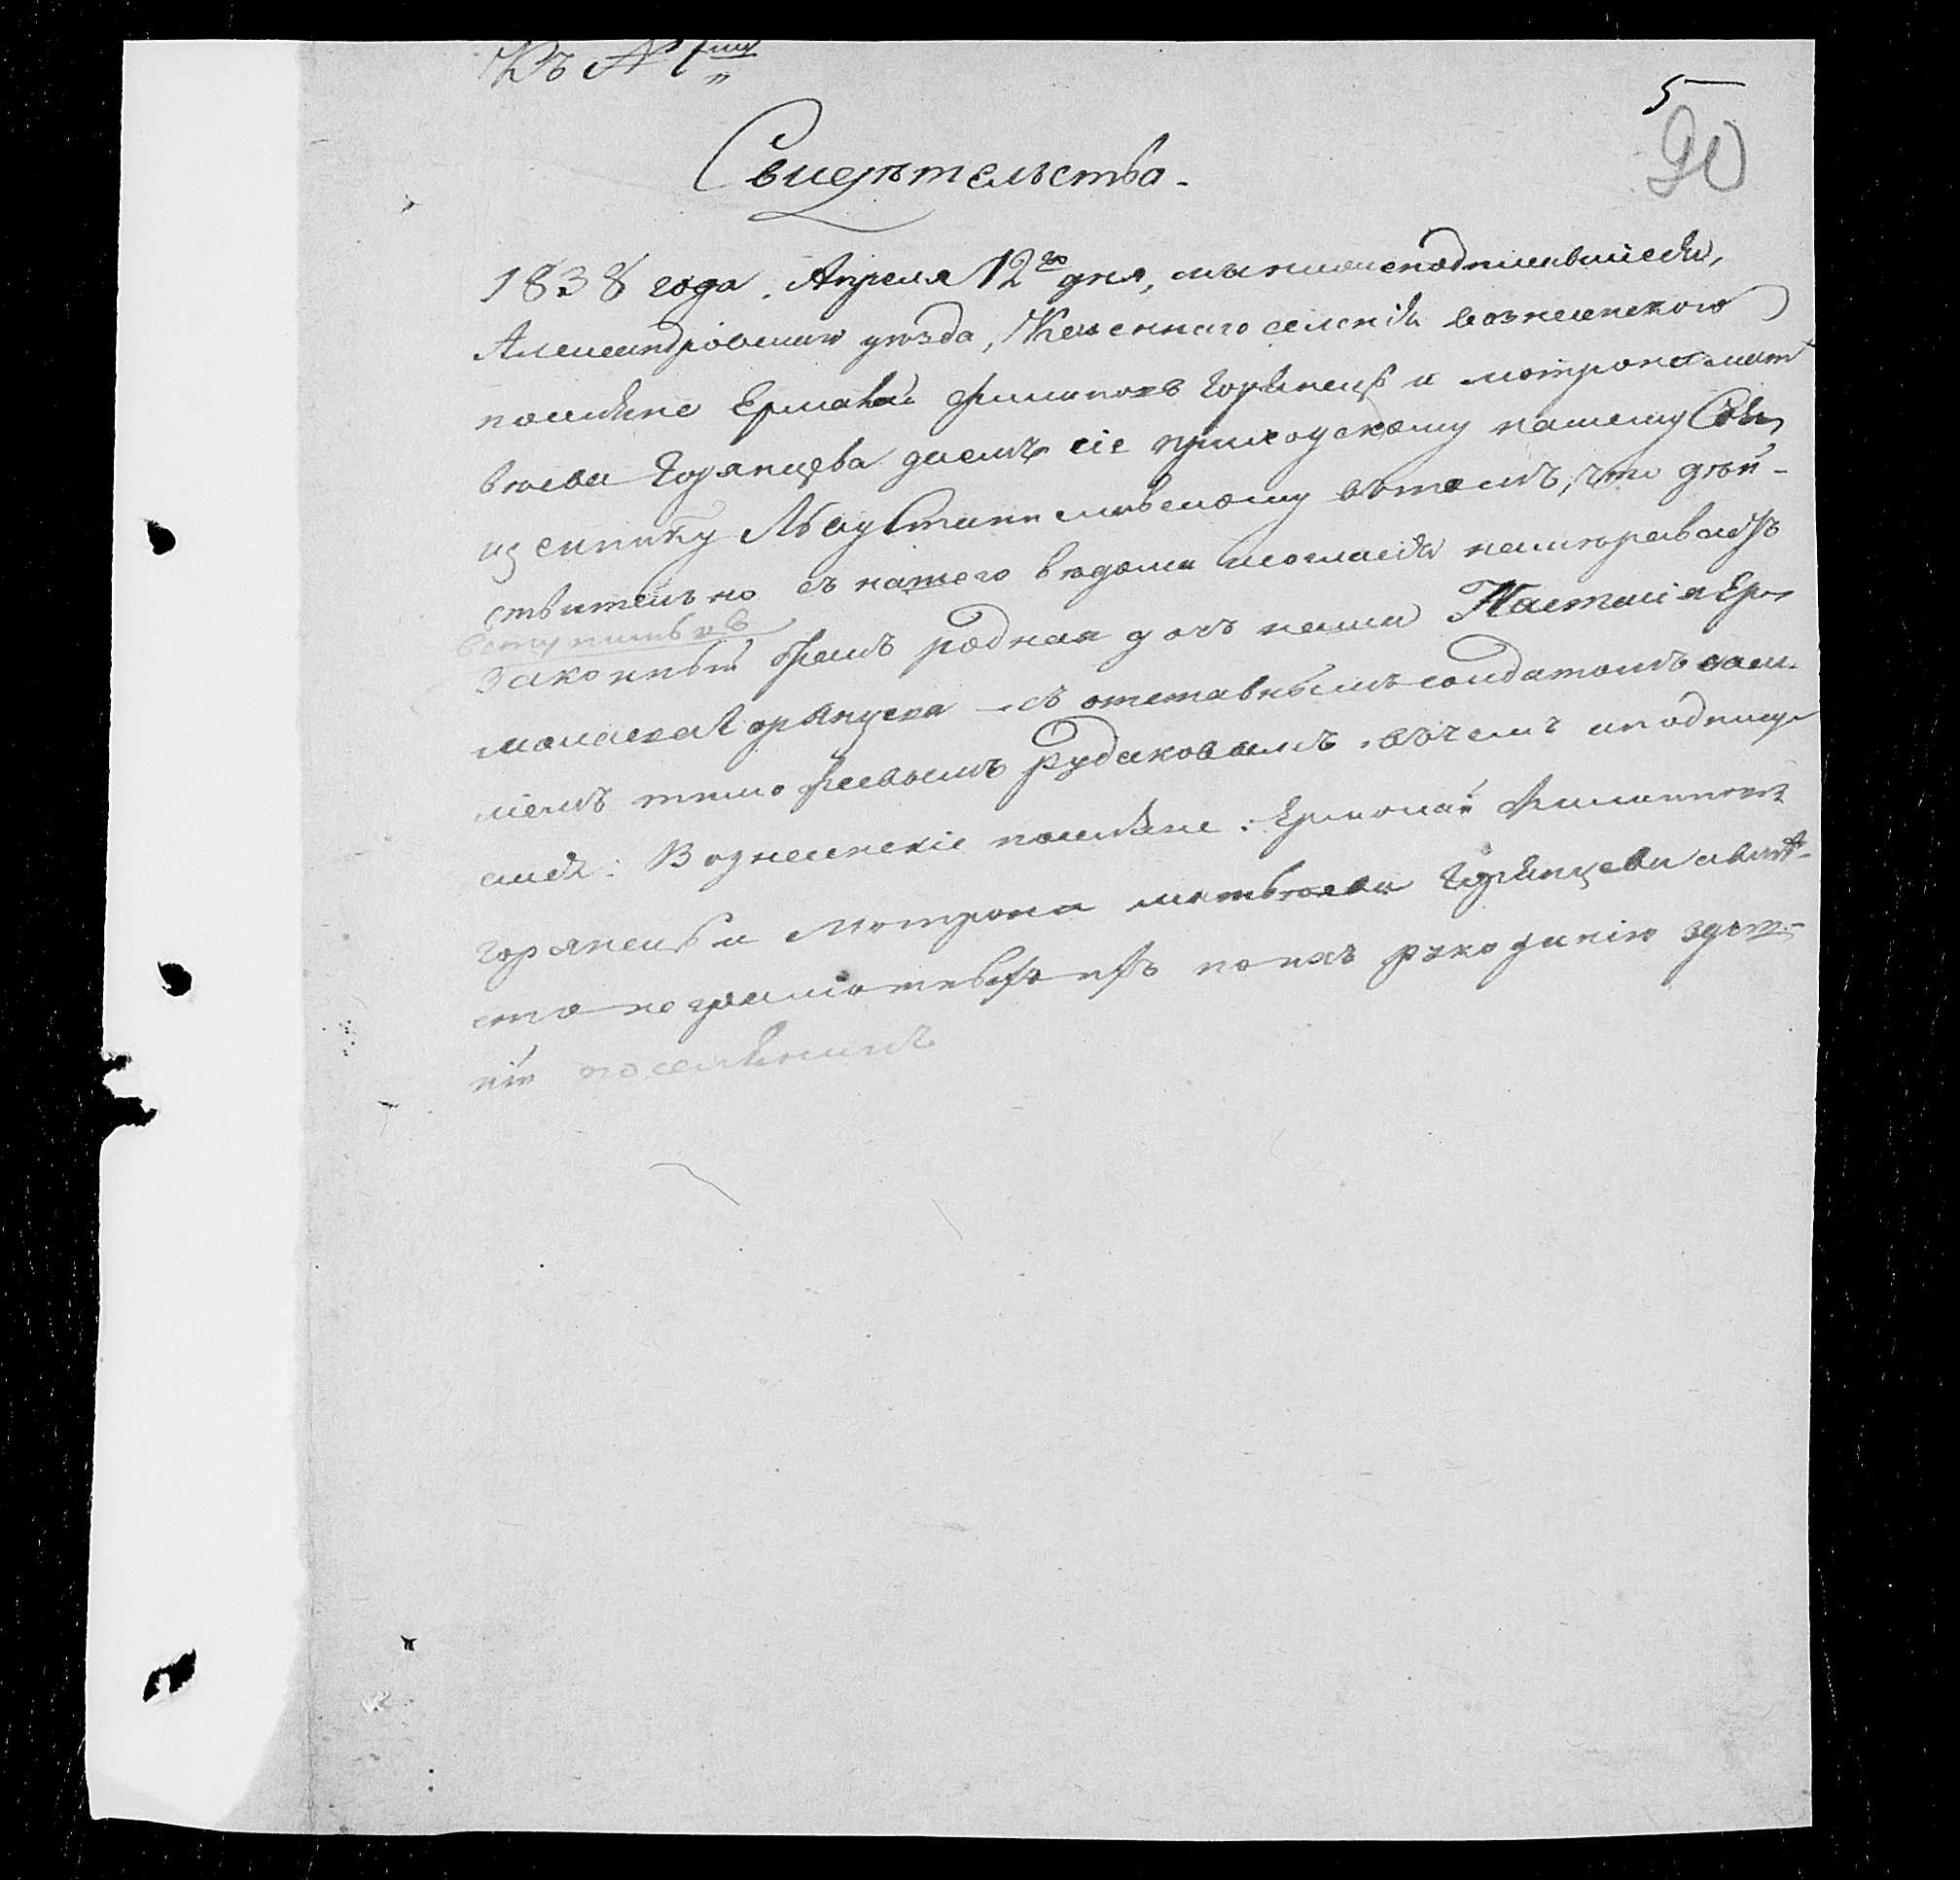 Къ №
5
90
Свидѣтельства.
1838 года. Апреля 12го дня, мы нижеподписавшіеся,
Александровскаго уѣзда, Казеннаго селенія вознесенского
поселяне Ермолай Филиповъ Горянецъ и мотрона мат
вѣева Горянцева даемъ сіе приходскому нашему Свя,
щеннику Льву Станиславскому въ томъ, что дѣй-
ствительно съ нашего вѣдома и согласія
вступить въ
законный бракъ родная дочъ наша Настасія Ер-
молаева Горянцева съ отставнымъ солдатомъ
Тимофеевымъ Рудаковымъ, въ чемъ и подписуем
ся: Вознесенскіе поселяне: Ермолай Филиповъ
горянецъ и Мотрона матвѣева Горянцева а вмѣ-
сто неграмотныхъ ихъ по ихъ рукоданію
поселянинъ